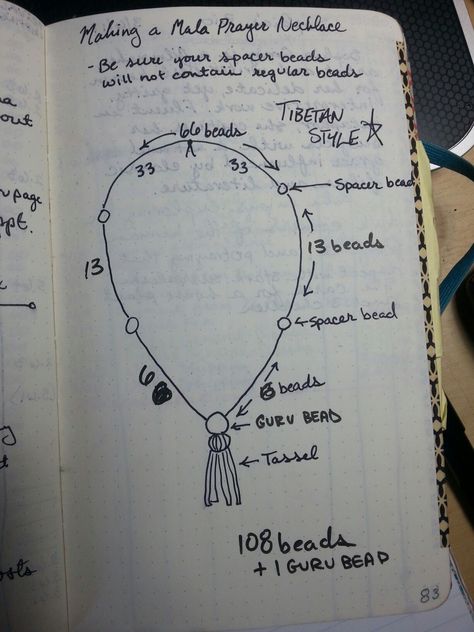 Making a Mala Prayer Necklace
- Be sure your spacer beads
will not contain regular beads
TIBETAN
STYLE
66 beads
33
33
Spacer bead
13
13 beads
Spacer bead
6
beads
GURU BEAD
Tassel
108 beads
+ 1 GURU BEAD
83